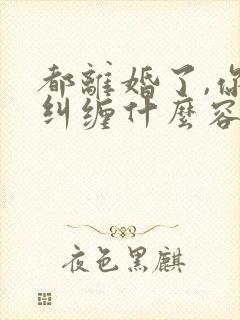 都離婚了,你
纠缠什麽容
夜色黑麒